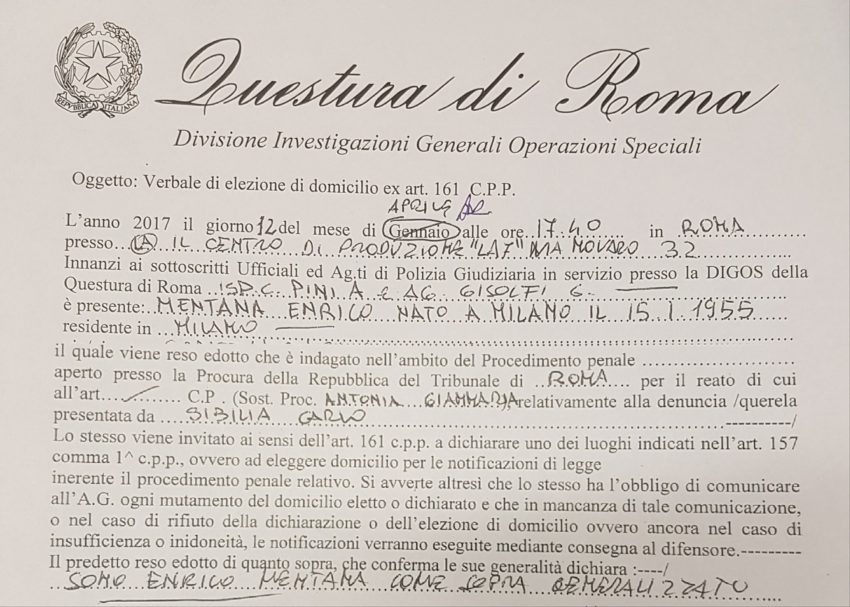 REPVBBLICA ITALIANA
Questura di Roma
Divisione Investigazioni Generali Operazioni Speciali
Oggetto: Verbale di elezione di domicilio ex art. 161 C.P.P.
APRILE
L'anno 2017 il giorno 12 del mese di Gennaio alle ore 17.40 in ROMA
presso (A) IL CENTRO DI PRODUZIONE "LA7" VIA NOVARO 32
Innanzi ai sottoscritti Ufficiali ed Ag.ti di Polizia Giudiziaria in servizio presso la DIGOS della
Questura di Roma ISP.C. PINI A. e AG. GISOLFI G.
è presente: MENTANA ENRICO NATO A MILANO IL 15.1.1955
residente in MILANO
il quale viene reso edotto che è indagato nell'ambito del Procedimento penale
aperto presso la Procura della Repubblica del Tribunale di ROMA per il reato di cui
all'art. C.P. (Sost. Proc. ANTONIA GIAMMARIA relativamente alla denuncia /querela
presentata da SIBILIA CARLO ----------/
Lo stesso viene invitato ai sensi dell'art. 161 c.p.p. a dichiarare uno dei luoghi indicati nell'art. 157
comma 1^ c.p.p., ovvero ad eleggere domicilio per le notificazioni di legge
inerente il procedimento penale relativo. Si avverte altresì che lo stesso ha l'obbligo di comunicare
all'A.G. ogni mutamento del domicilio eletto o dichiarato e che in mancanza di tale comunicazione,
o nel caso di rifiuto della dichiarazione o dell'elezione di domicilio ovvero ancora nel caso di
insufficienza o inidoneità, le notificazioni verranno eseguite mediante consegna al difensore.---------
Il predetto reso edotto di quanto sopra, che conferma le sue generalità dichiara :----/
SONO ENRICO MENTANA COME SOPRA GENERALIZZATO